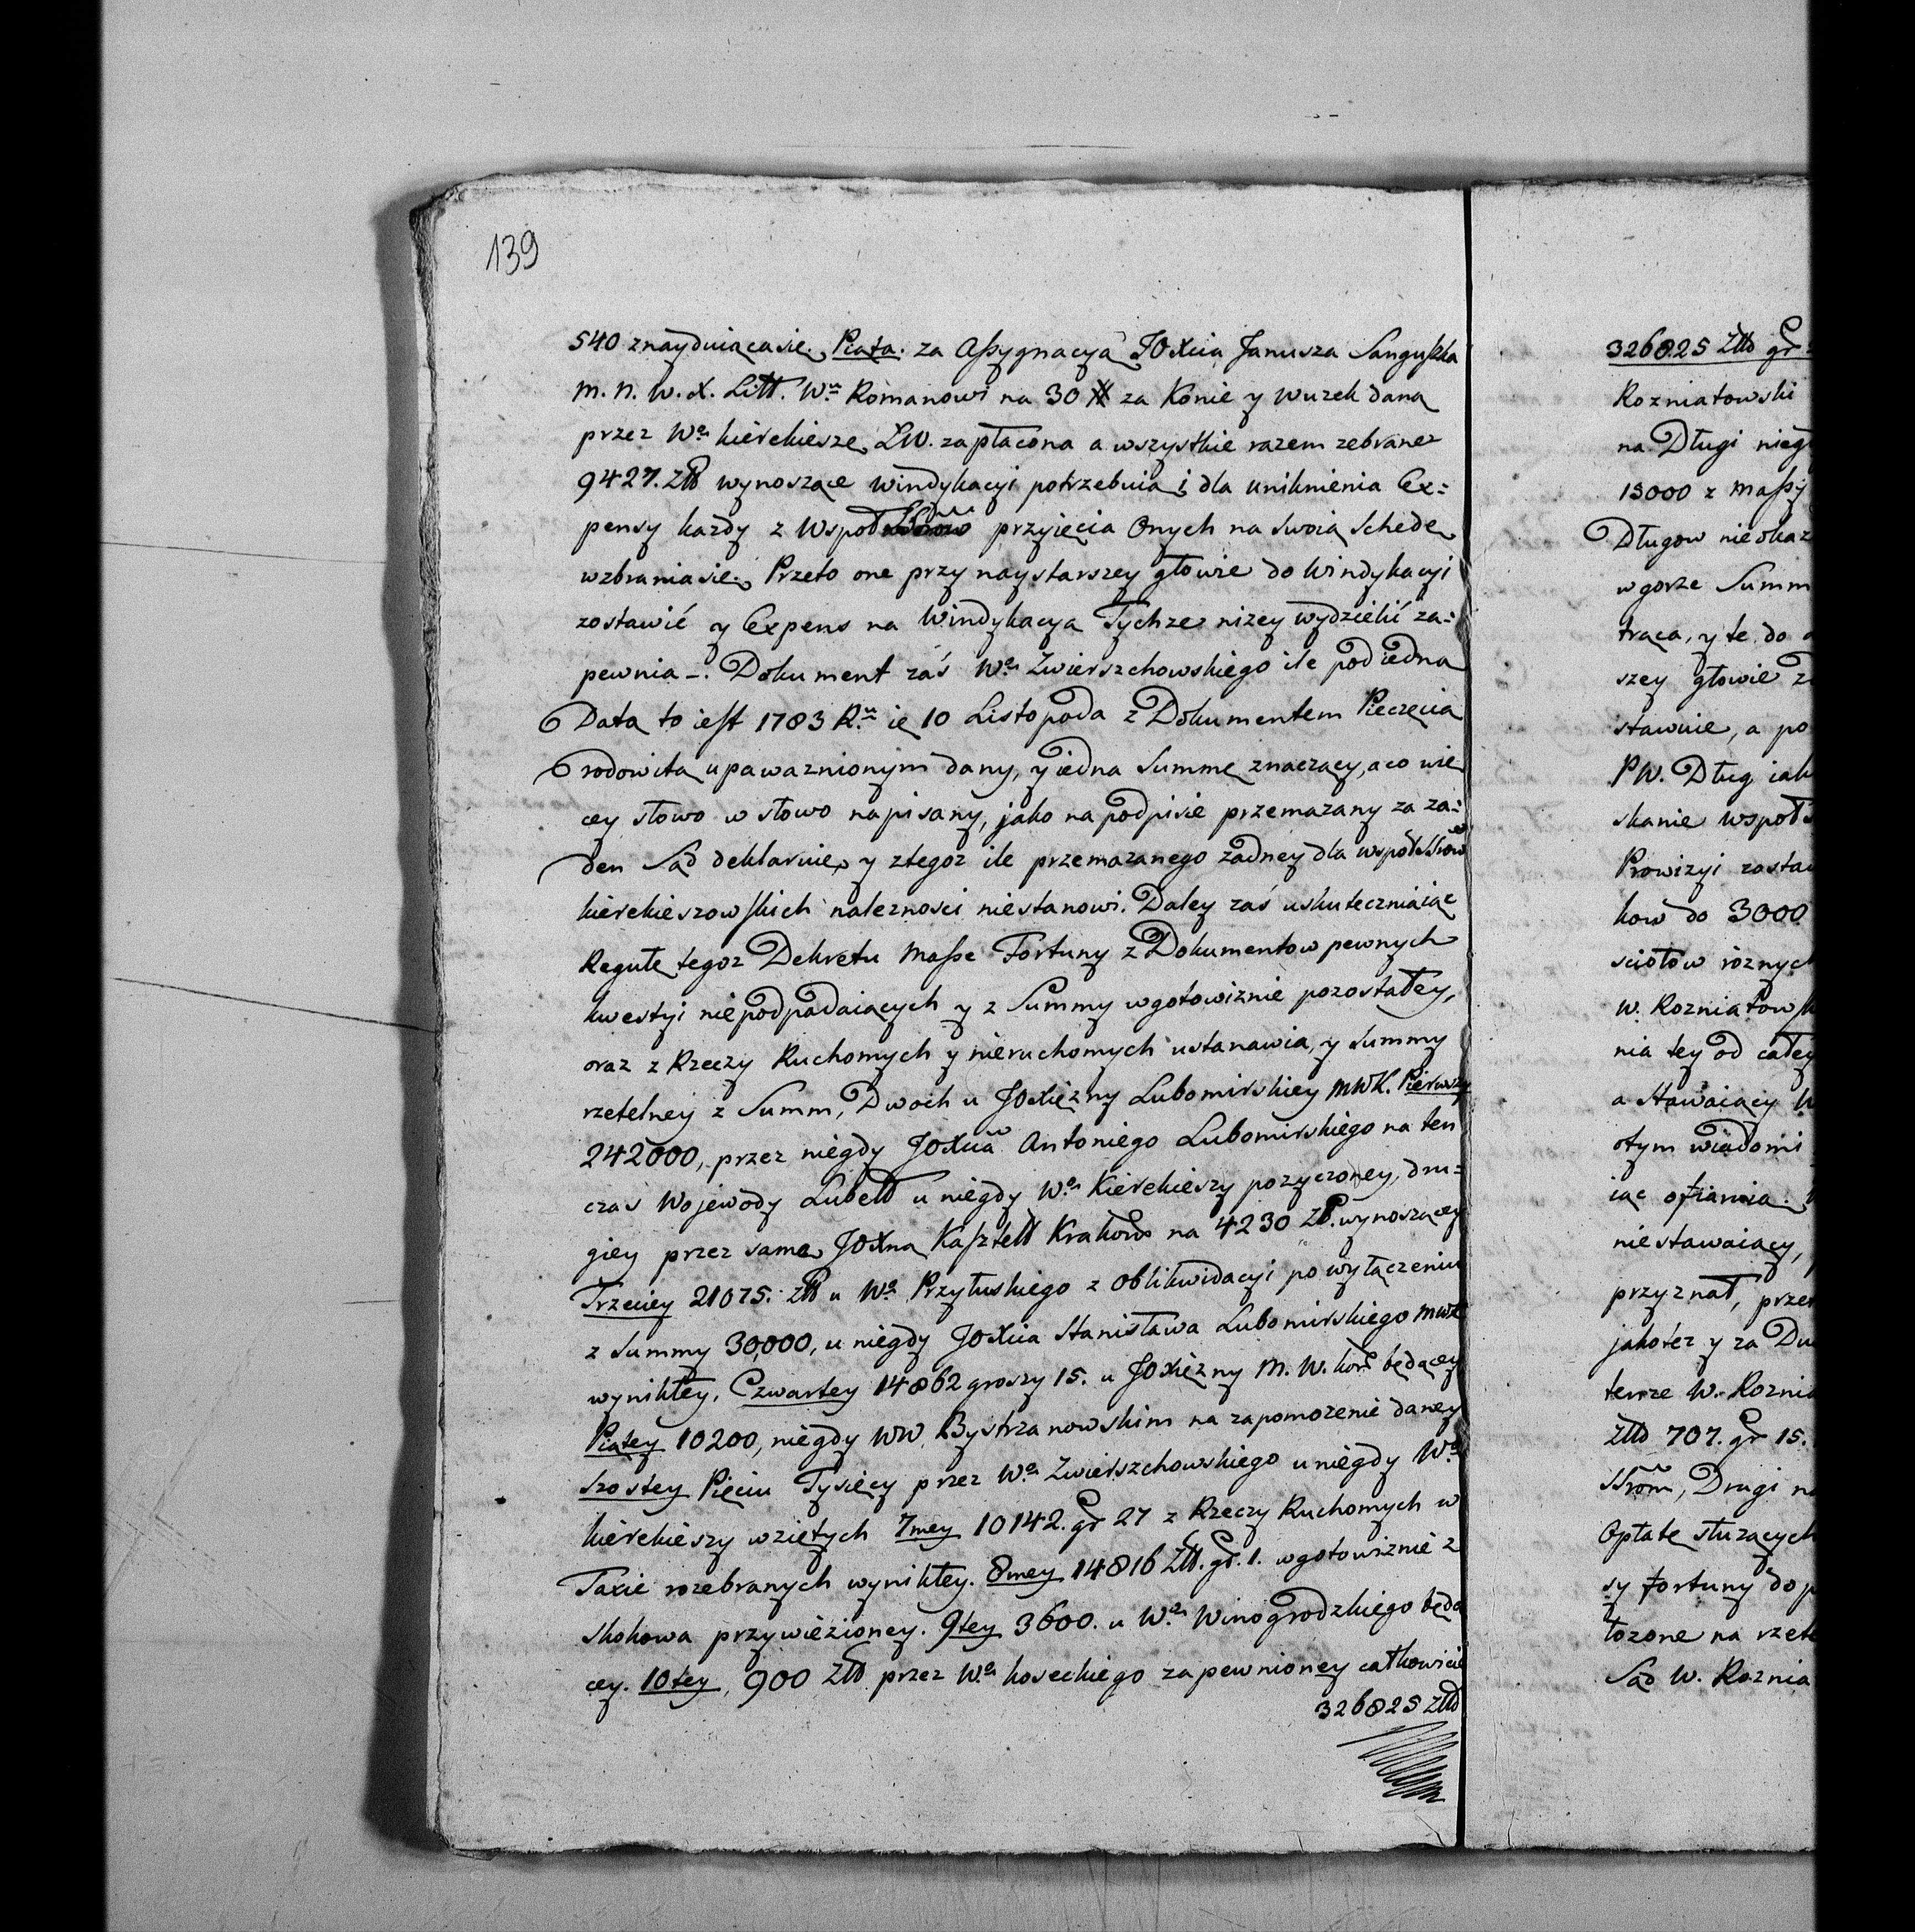 139
540 znayduiąca się. Piąta. za Assygnacyą JOXcia Janusza Sanguszka
M. N. W. X. Litt. Wu Romanowi na 30 # za Konie y wuzek daną
przez Wa Kierekieszę ŁW. zapłacona a wszystkie razem zebrane
9427. złł wynoszące windykacyi potrzebuią i dla uniknienia Ex=
pensy każdy z Współ przyięcia Onych na swoią Schedę
wzbrania się. Przeto one przy naystarszey głowie do Windykacyi
zostawić y Expens na Windykacyą Tychże niżey wydzielić za=
pewnia –. Dokument zaś Wo Zwierszchowskiego ile pod iedną
Datą to iest 1783 Ru ię 10 Listopada z Dokumentem Pieczęcią
rodowitą upaważnionym dany, y iedną Summę znaczący, a co wię
cey słowo w słowo napisany, jako na podpisie przemazany za ża=
den Sąd deklaruie, y z tegoż ile przemazanego żadney dla współSSrow
Kierekieszowskich należności niestanowi. Daley zaś uskuteczniaiąc
Regułę tegoż Dekretu Massę Fortuny z Dokumentow pewnych
kwestyi niepodpadaiących y z Summy w gotowiznie pozostałey,
oraz z Rzeczy Ruchomych y nieruchomych ustanawia, y Summy
rzetelney z Summ, Dwoch u JOXiężny Lubomirskiey MWK. Pierwszy
242000, przez niegdy JOXcia Antoniego Lubomirskiego na ten
czas Wojewody Lubell u niegdy Wo Kierekieszy pożyczoney, dru=
giey przez samę JOXną Kasztell Krakow na 4230 zł. wynoszącey
Trzeciey 21075. złł u Wo Przyłuskiego z Oblikwidacyi po wyłączeniu
z Summy 30,000, u niegdy JOXcia Stanisława Lubomirskiego MWK
wynikłey. Czwartey 14862 groszy 15. u JOXiężny M. W. Kor będącey
Piątey 10200, niegdy WW Bystrzanowskim na zapomożenie daney
Szostey Pięciu Tysięcy przez Wo Zwierszchowskiego u niegdy Wo
Kierekieszy wziętych 7mey 10142. gr 27 z Rzeczy Ruchomych w
Taxie rozebranych wynikłey. 8mey 14816 złł. gr. 1. w gotowiznie z
Skokowa przywiezioney. 9tey 3600. u Wo Winogrodzkiego będą
cey. 10tey, 900 złł przez Wo Koseckiego zapewnioney całkowicie
326825 złł
326825 złł gr
Rozniatowski
na Długi niegd
15000 z Massy
Długow nieokaz
w gorze Summ
trąca, y te do
szey głowie z
stawuie, a po
PW. Dług iak
skanie współ
Prowizyi zosta
kow do 3000
sciołow rożnych
W. Rozniatowsk
nia tey od całey
a Stawaiący
o tym wiadomi
iąc ofiaruia.
niestawaiący,
przyznał, prze
jakoteż y za Du
terze W. Roznia
złł 707. gr 15.
SSrom, Drugi n
Opłatę służących
sy fortuny do p
łożone na rzet
Sąd W. Roznia